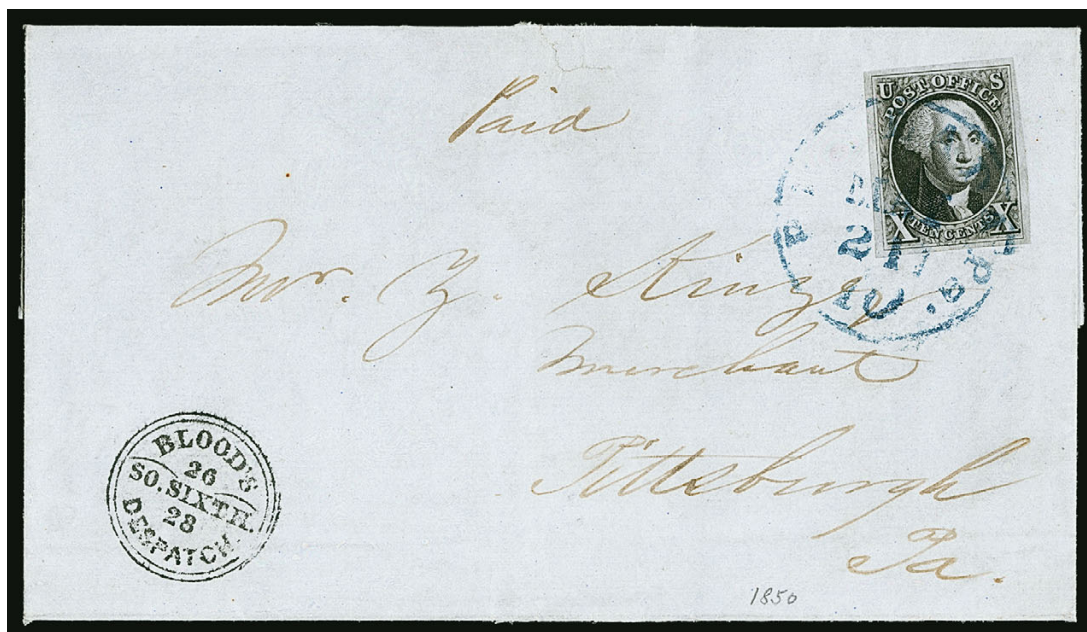 Paid
U S
POST OFFICE
X TEN CENTS X
10
Mr. Y. Kinzey
Merchant
Pittsburgh
Pa.
BLOOD'S
26
SO. SIXTH.
28
DESPATCH.
1850